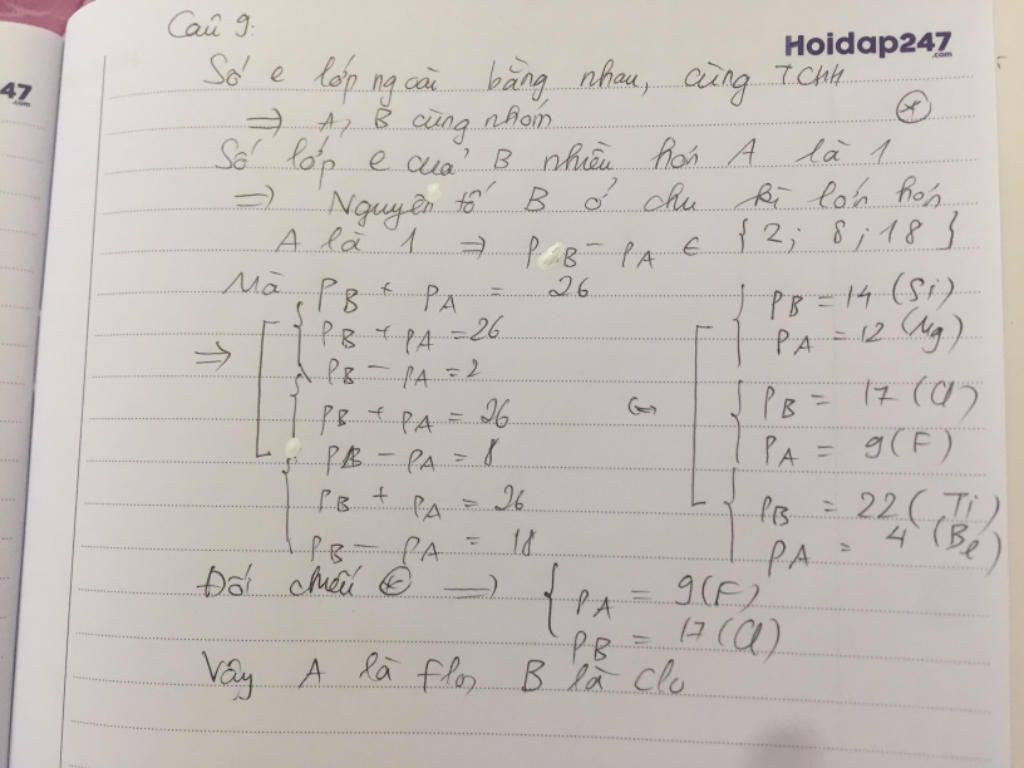 Câu 9:
Hoidap247
.com
47
.com
Số e lớp ngoài bằng nhau, cùng TCHH
⇒ A, B cùng nhóm (*)
Số lớp e của B nhiều hơn A là 1
⇒ Nguyên tố B ở chu kì lớn hơn
A là 1 ⇒ PB - PA ∈ {2; 8; 18}
Mà PB + PA = 26
⇒ PB + PA = 26
PB - PA = 2
PB + PA = 26
PB - PA = 8
PB + PA = 26
PB - PA = 18
PB = 14 (Si)
PA = 12 (Mg)
PB = 17 (Cl)
PA = 9 (F)
PB = 22 (Ti)
PA = 4 (Be)
Đối chiếu (*) ⇒ PA = 9 (F)
PB = 17 (Cl)
Vây A là flo, B là clo